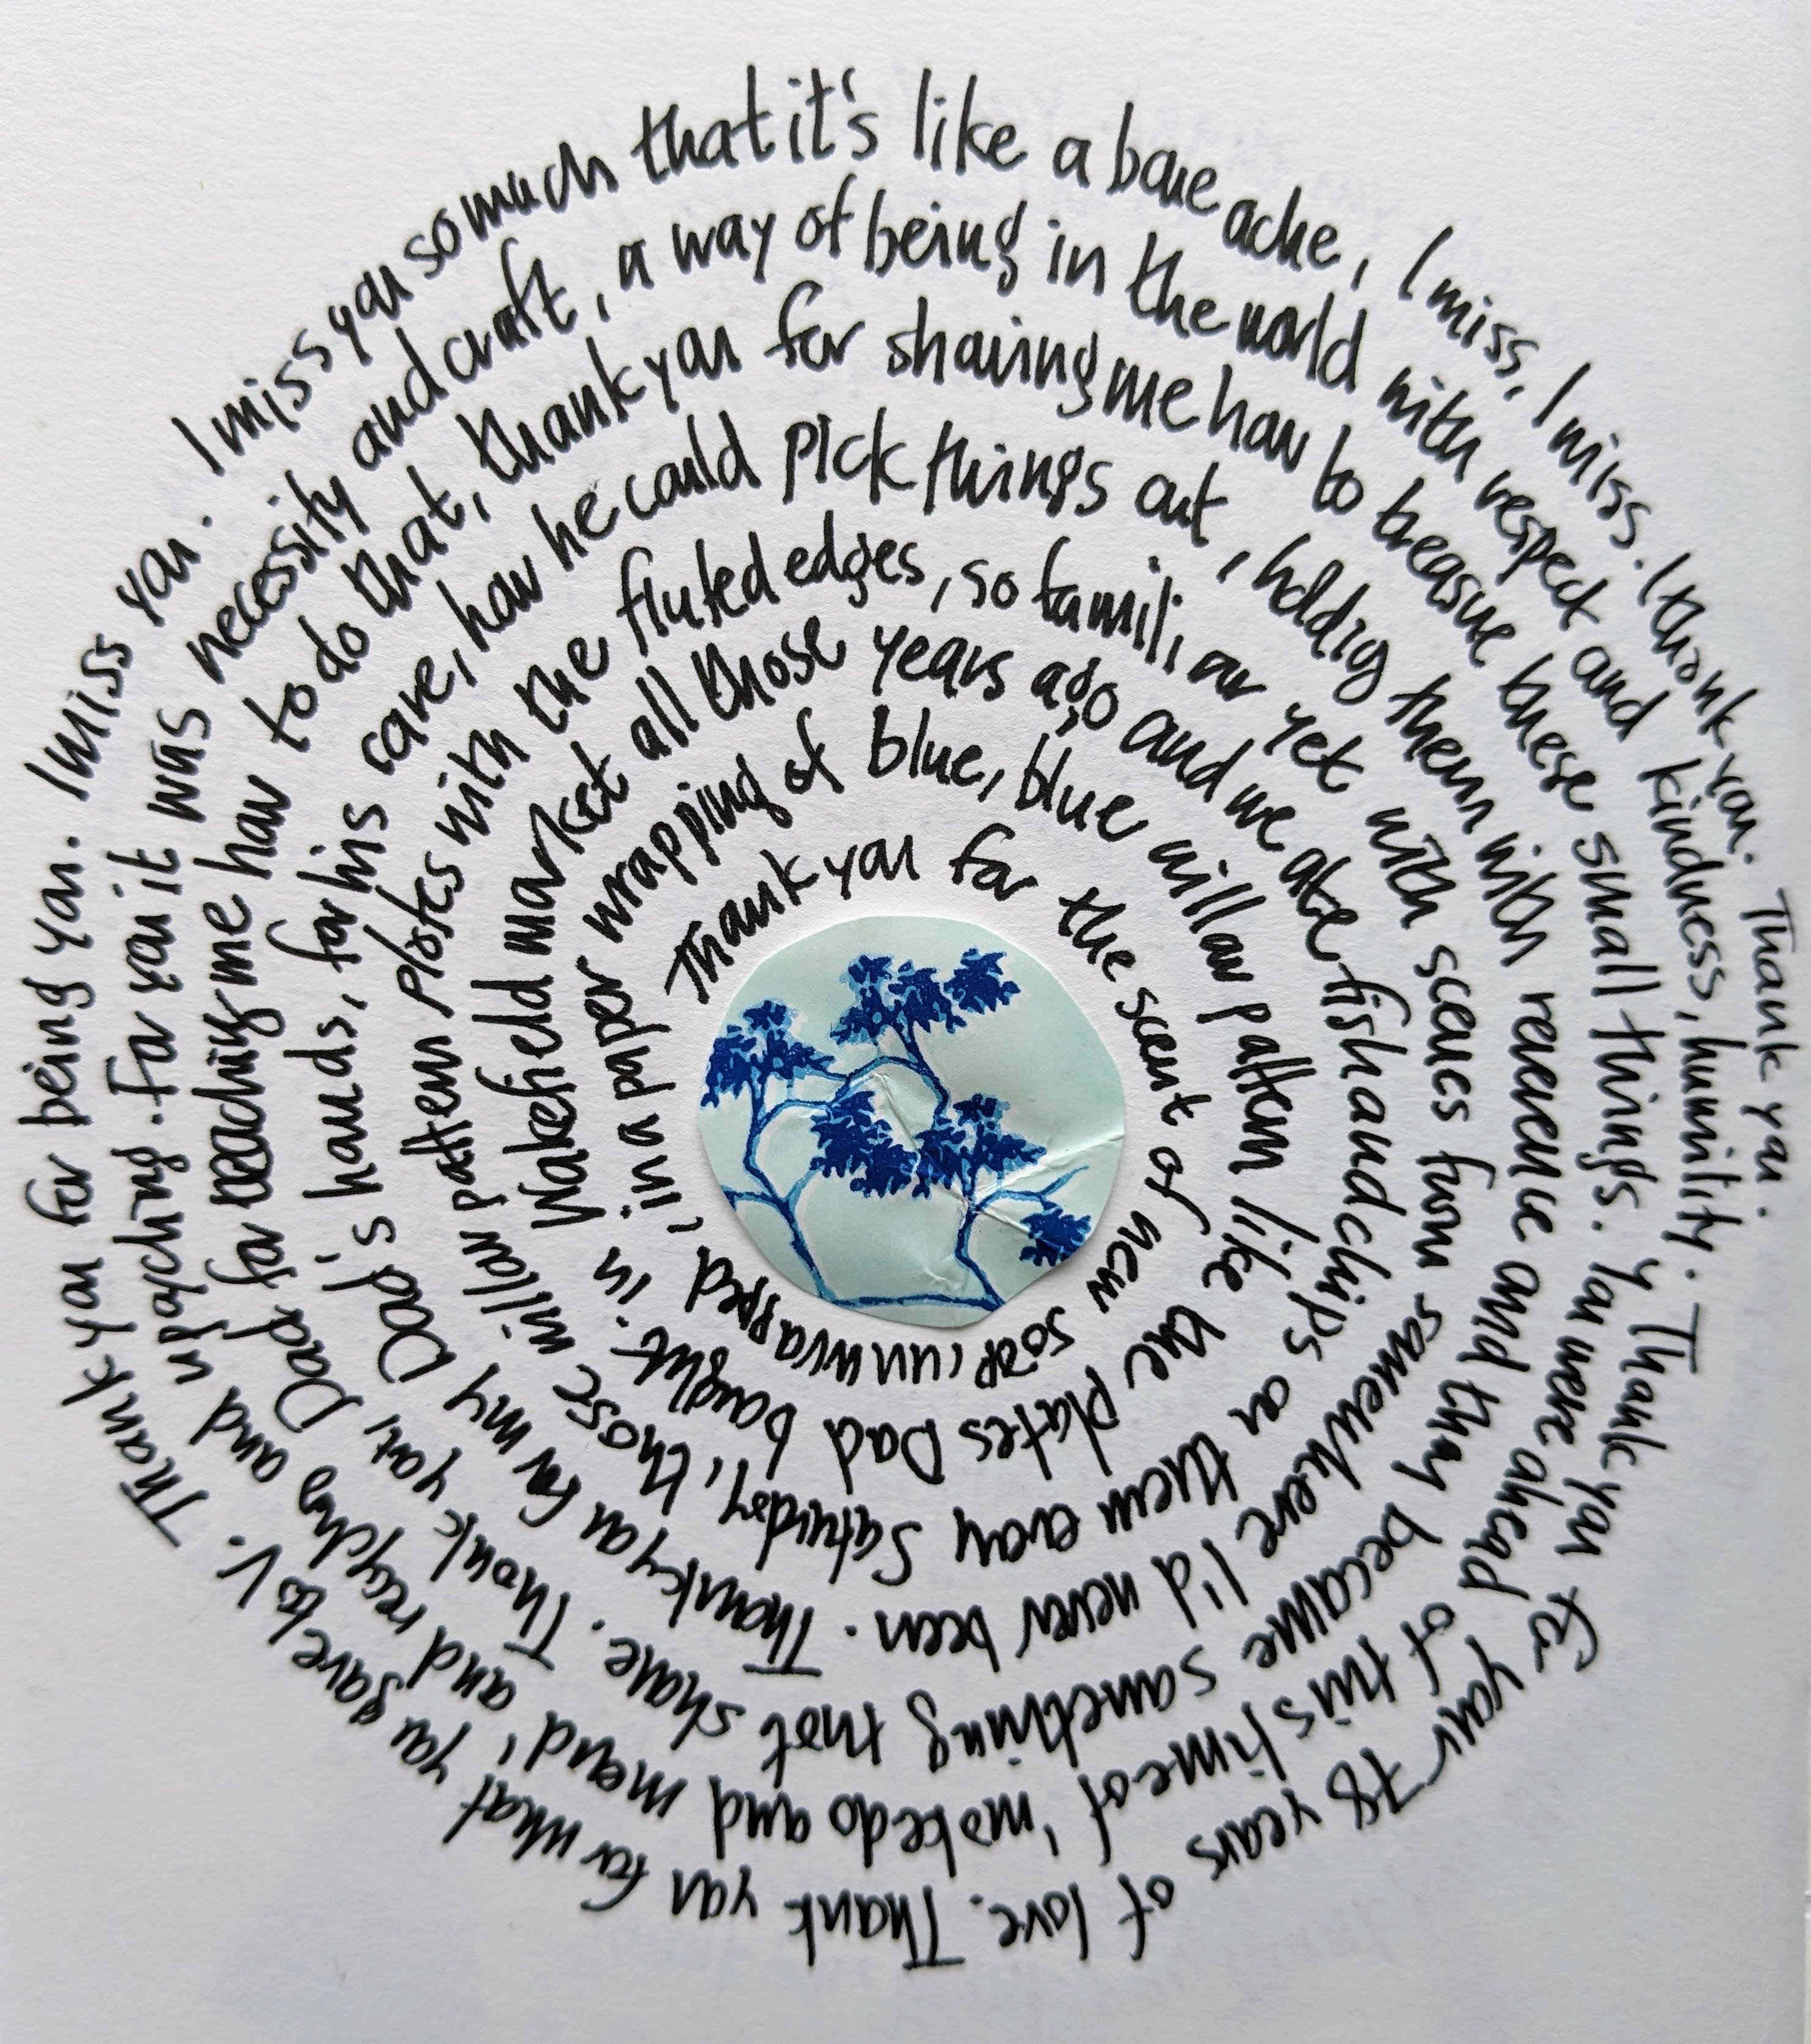 Thank you for the scent of new soap, unwrapped, in a paper wrapping of blue, blue willow pattern like the plates Dad bought in Wakefield market all those years ago and we ate fish and chips on them every Saturday, those willow pattern plates with the fluted edges, so familiar yet with scenes from somewhere I'd never been. Thank you for my Dad's hands, for his care, how he could pick things out, holding them with reverence and they became something that shone. Thank you, Dad for teaching me how to do that, thank you for showing me how to treasure these small things. You were ahead of this time of 'make do and mend', and recycling and upcycling. For you it was necessity and craft, a way of being in the world with respect and kindness, humility. Thank you for your 78 years of love. Thank you for what you gave to V. Thank you for being you. I miss you. I miss you so much that it's like a bone ache, I miss, I miss. I thank you. Thank you.